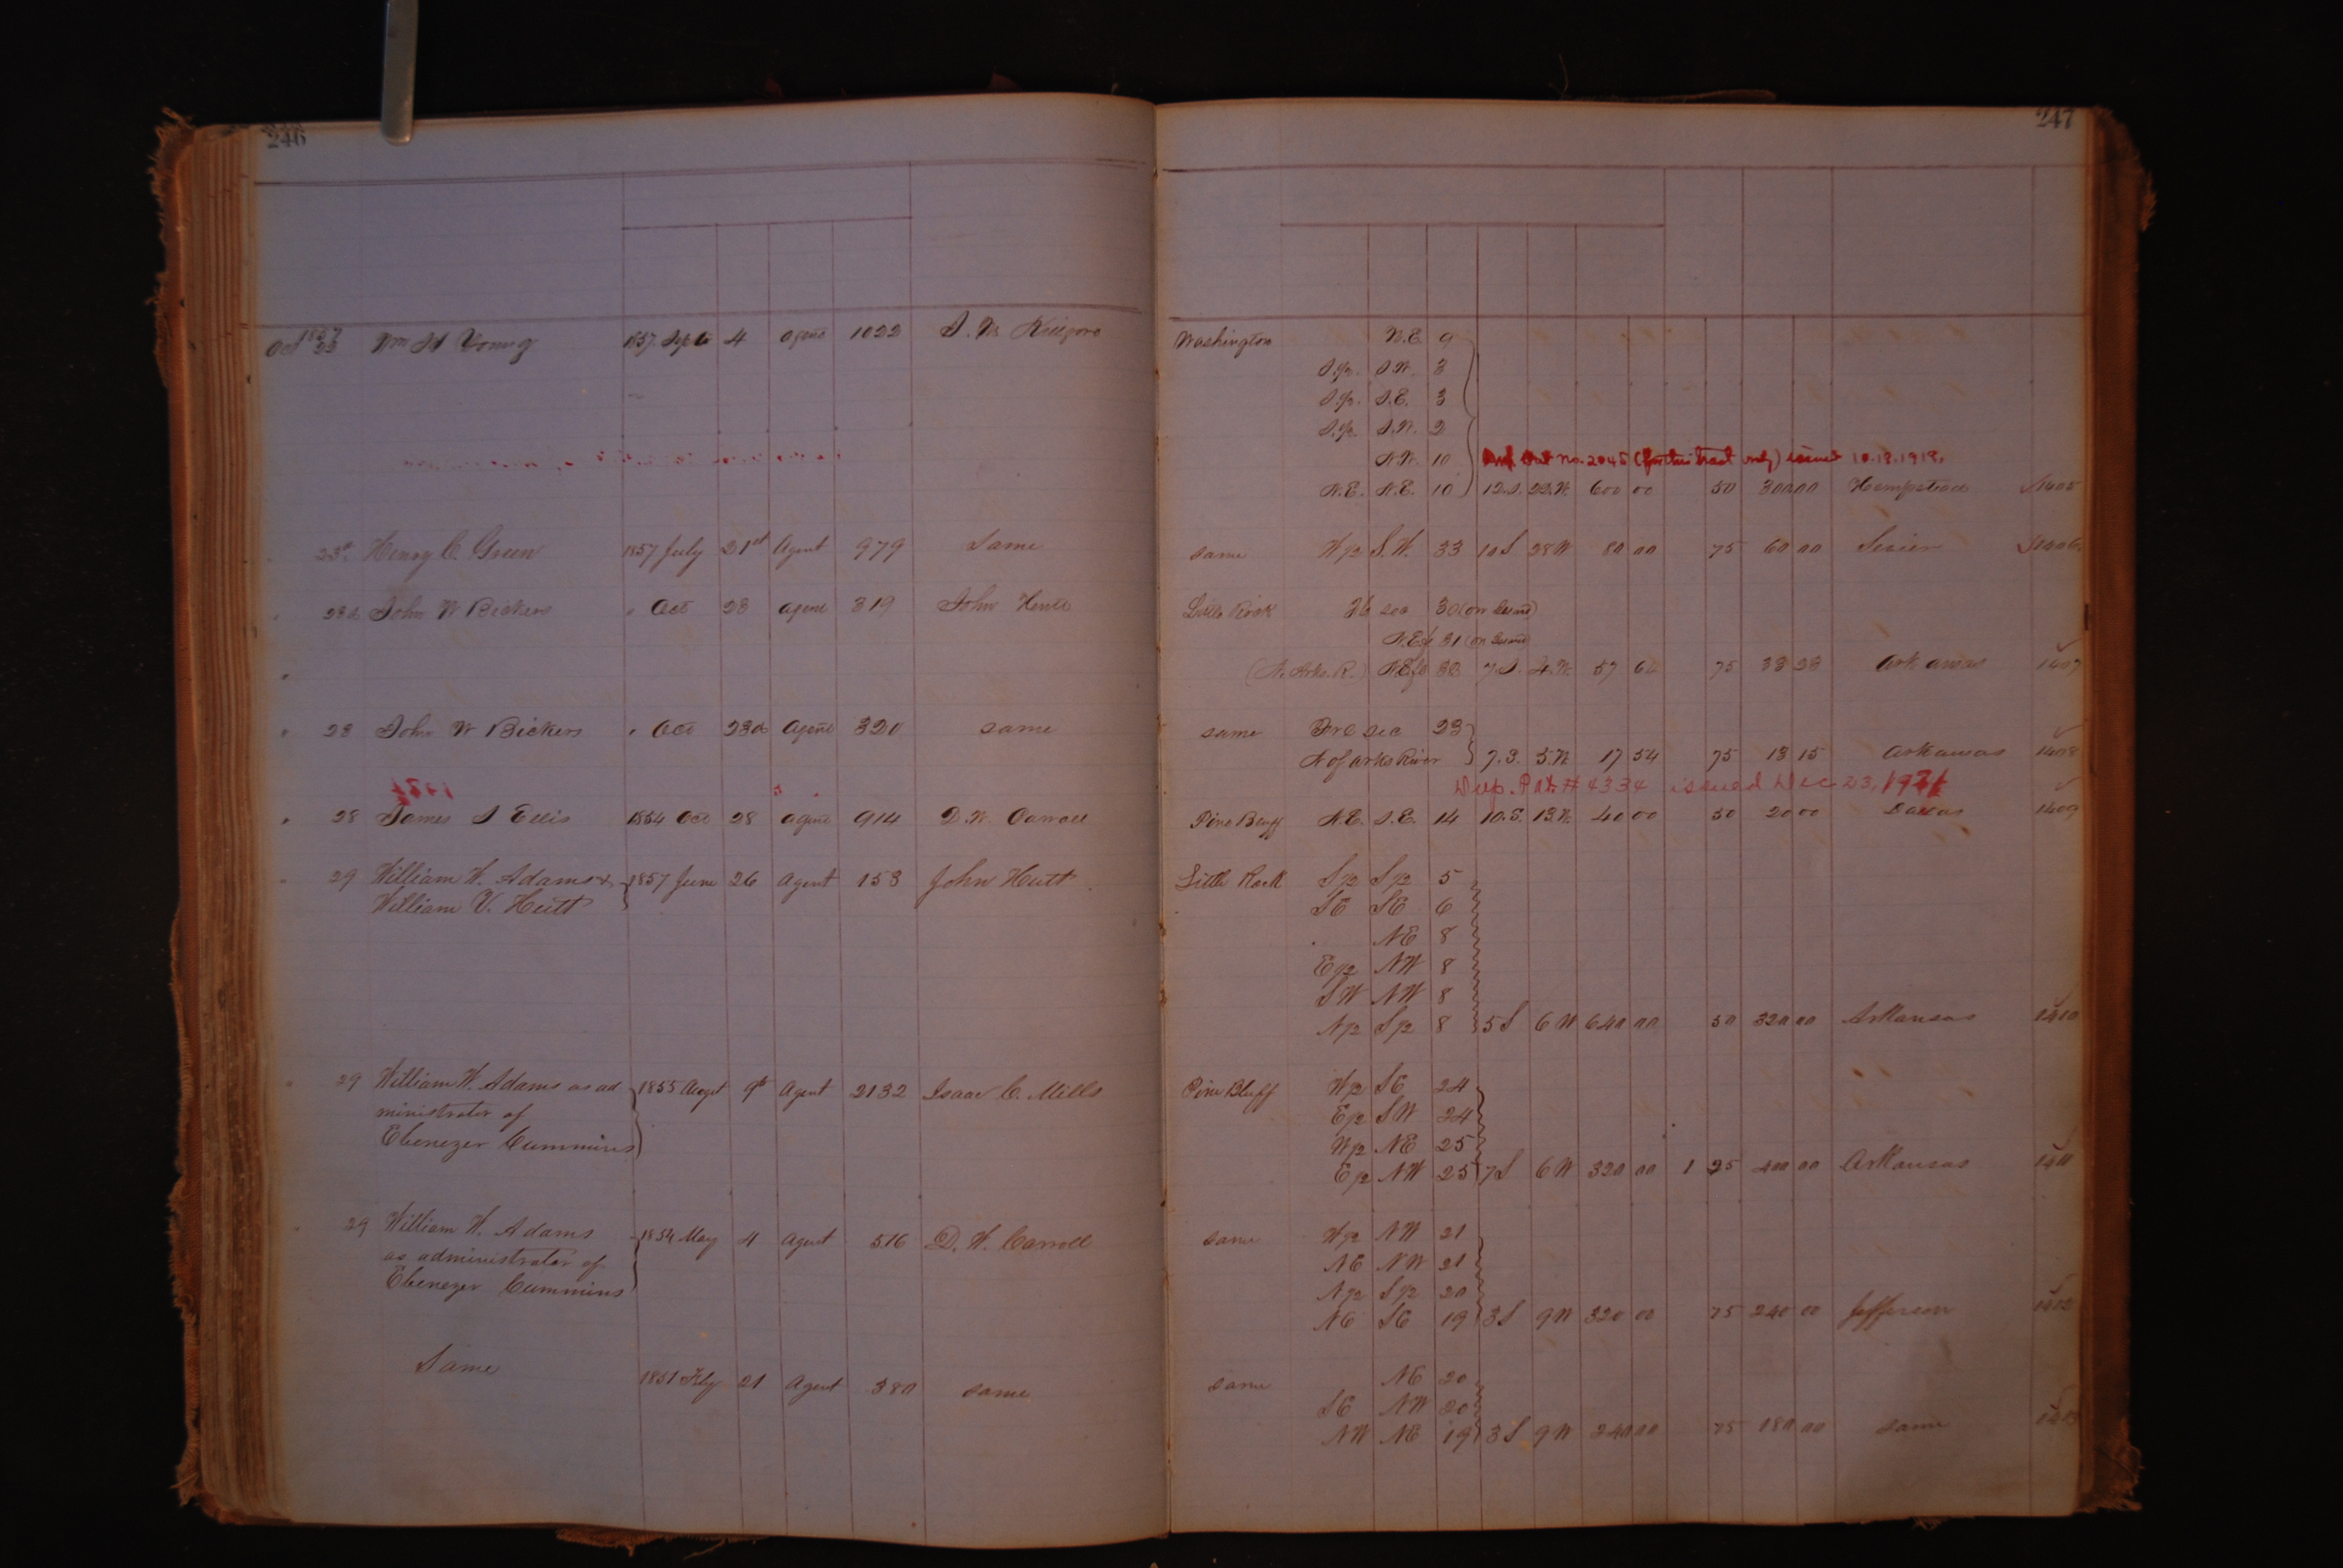 246
247
Oct 1857 23 Wm H Young 1857 Sept 4 agent 1022 Washington N.E. 9
S.1/2 S.W. 3
S.1/2 S.E. 3
S.1/2 S.W. 2
N.W. 10 Pat No. 2045 (for this tract only) issued 10.18.1918.
N.E. N.E. 10 12.S. 22.W. 600 00 50 300 00 Hempstead 1405
23d Henry C. Green 1857 July 21st Agent 979 Same same W1/2 S.W. 33 10S 28W 80 00 75 60 00 Sevier 1406
28th John W Bickers " Oct 28 agent 319 John Hutt Little Rock sec 30 (on Island)
31 (on Island)
(N. Arks. R.) 7.S. 4.W. 57 75 Arkansas 1407
" 28 John W Bickers " Oct agent 320 same same Frc sec 23
N of Arks River 7.S. 5.W. 17 54 75 13 15 Arkansas 1408
Dup. Pat. # 4334 issued Dec 23, 1921
" 28 James S Ellis 1854 Oct 28 agent 914 D.W. Carroll Pine Bluff N.E. S.E. 14 10.S. 13.W. 40 00 50 20 00 Dallas 1409
" 29 William W. Adams & 1857 June 26 Agent 153 John Hutt Little Rock S1/2 S1/2 5
William V. Hutt SE SE 6
NE 8
E1/2 NW 8
SW NW 8
N1/2 S1/2 8 5S 6W 640 00 50 320 00 Arkansas 1410
" 29 William W. Adams as ad 1855 Augt 9th Agent 2132 Isaac C. Mills Pine Bluff W1/2 SE 24
ministrator of E1/2 SW 24
Ebenezer Cummins W1/2 NE 25
E1/2 NW 25 7S 6W 320 00 1 25 400 00 Arkansas 1411
" 29 William W. Adams 1854 May 4 Agent 516 D. W. Carroll same W1/2 NW 21
as administrator of NE NW 21
Ebenezer Cummins N1/2 S1/2 20
NE SE 19 3S 9W 320 00 75 240 00 Jefferson 1412
Same 21 Agent 380 same same NE 20
SE NW 20
NW NE 19 3S 9W 240 00 75 180 00 same 1413